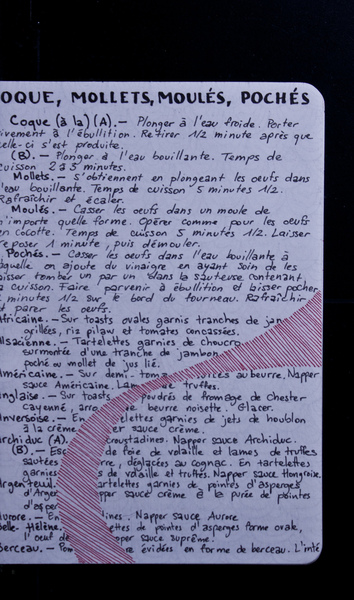 OQUE, MOLLETS, MOULÉS, POCHÉS
Coque (à la) (A).- Plonger à l'eau froide. Porter
ivement à l'ébullition. Retirer 1/2 minute après que
elle-ci s'est produite.
(B).- Plonger à l'eau bouillante. Temps de
uisson 2 à 3 minutes.
Mollets.- s'obtiennent en plongeant les oeufs dans
l'eau bouillante. Temps de cuisson 5 minutes 1/2.
Rafraîchir et écaler.
Moulés.- Casser les oeufs dans un moule de
n'importe quelle forme. Opérer comme pour les oeufs
en cocotte. Temps de cuisson 5 minutes 1/2. Laisser
reposer 1 minute, puis démouler.
Pochés.- Casser les oeufs dans l'eau bouillante à
aquelle on ajoute du vinaigre en ayant soin de les
aisser tomber un par un dans la sauteuse contenant
a cuisson. Faire parvenir à ébullition et laisser pocher
minutes 1/2 sur le bord du fourneau. Rafraîchir
t parer les oeufs.
fricaine.- Sur toasts ovales garnis tranches de jam
grillées, riz pilaw et tomates concassées.
lsacienne.- Tartelettes garnies de choucro
surmontée d'une tranche de jambon
poché ou mollet de jus lié.
méricaine.- Sur demi-toma farcies au beurre. Napper
sauce Américaine. Lam truffes.
nglaise.- Sur toasts poudrés de fromage de Chester
Cayenné, arro beurre noisette. Glacer.
nversoise.- En telettes garnies de jets de houblon
à la crème sauce crème.
rchiduc (A). Croustadines. Napper sauce Archiduc.
(B).- Esc de foie de volaille et lames de truffes
sautées rre, déglacées au cognac. En tartelettes
garnies s de volaille et truffes. Napper sauce Hongroise.
rgenteuil. artelettes garnies de pointes d'asperges
d'Argen pper sauce crème à la purée de pointes
d'asper
urore.- En dines. Napper sauce Aurore
elle-Hélène. ettes de pointes d'asperges forme ovale,
l'oeuf de pper sauce suprême.
erceau.- Pom re évidées en forme de berceau. L'inté